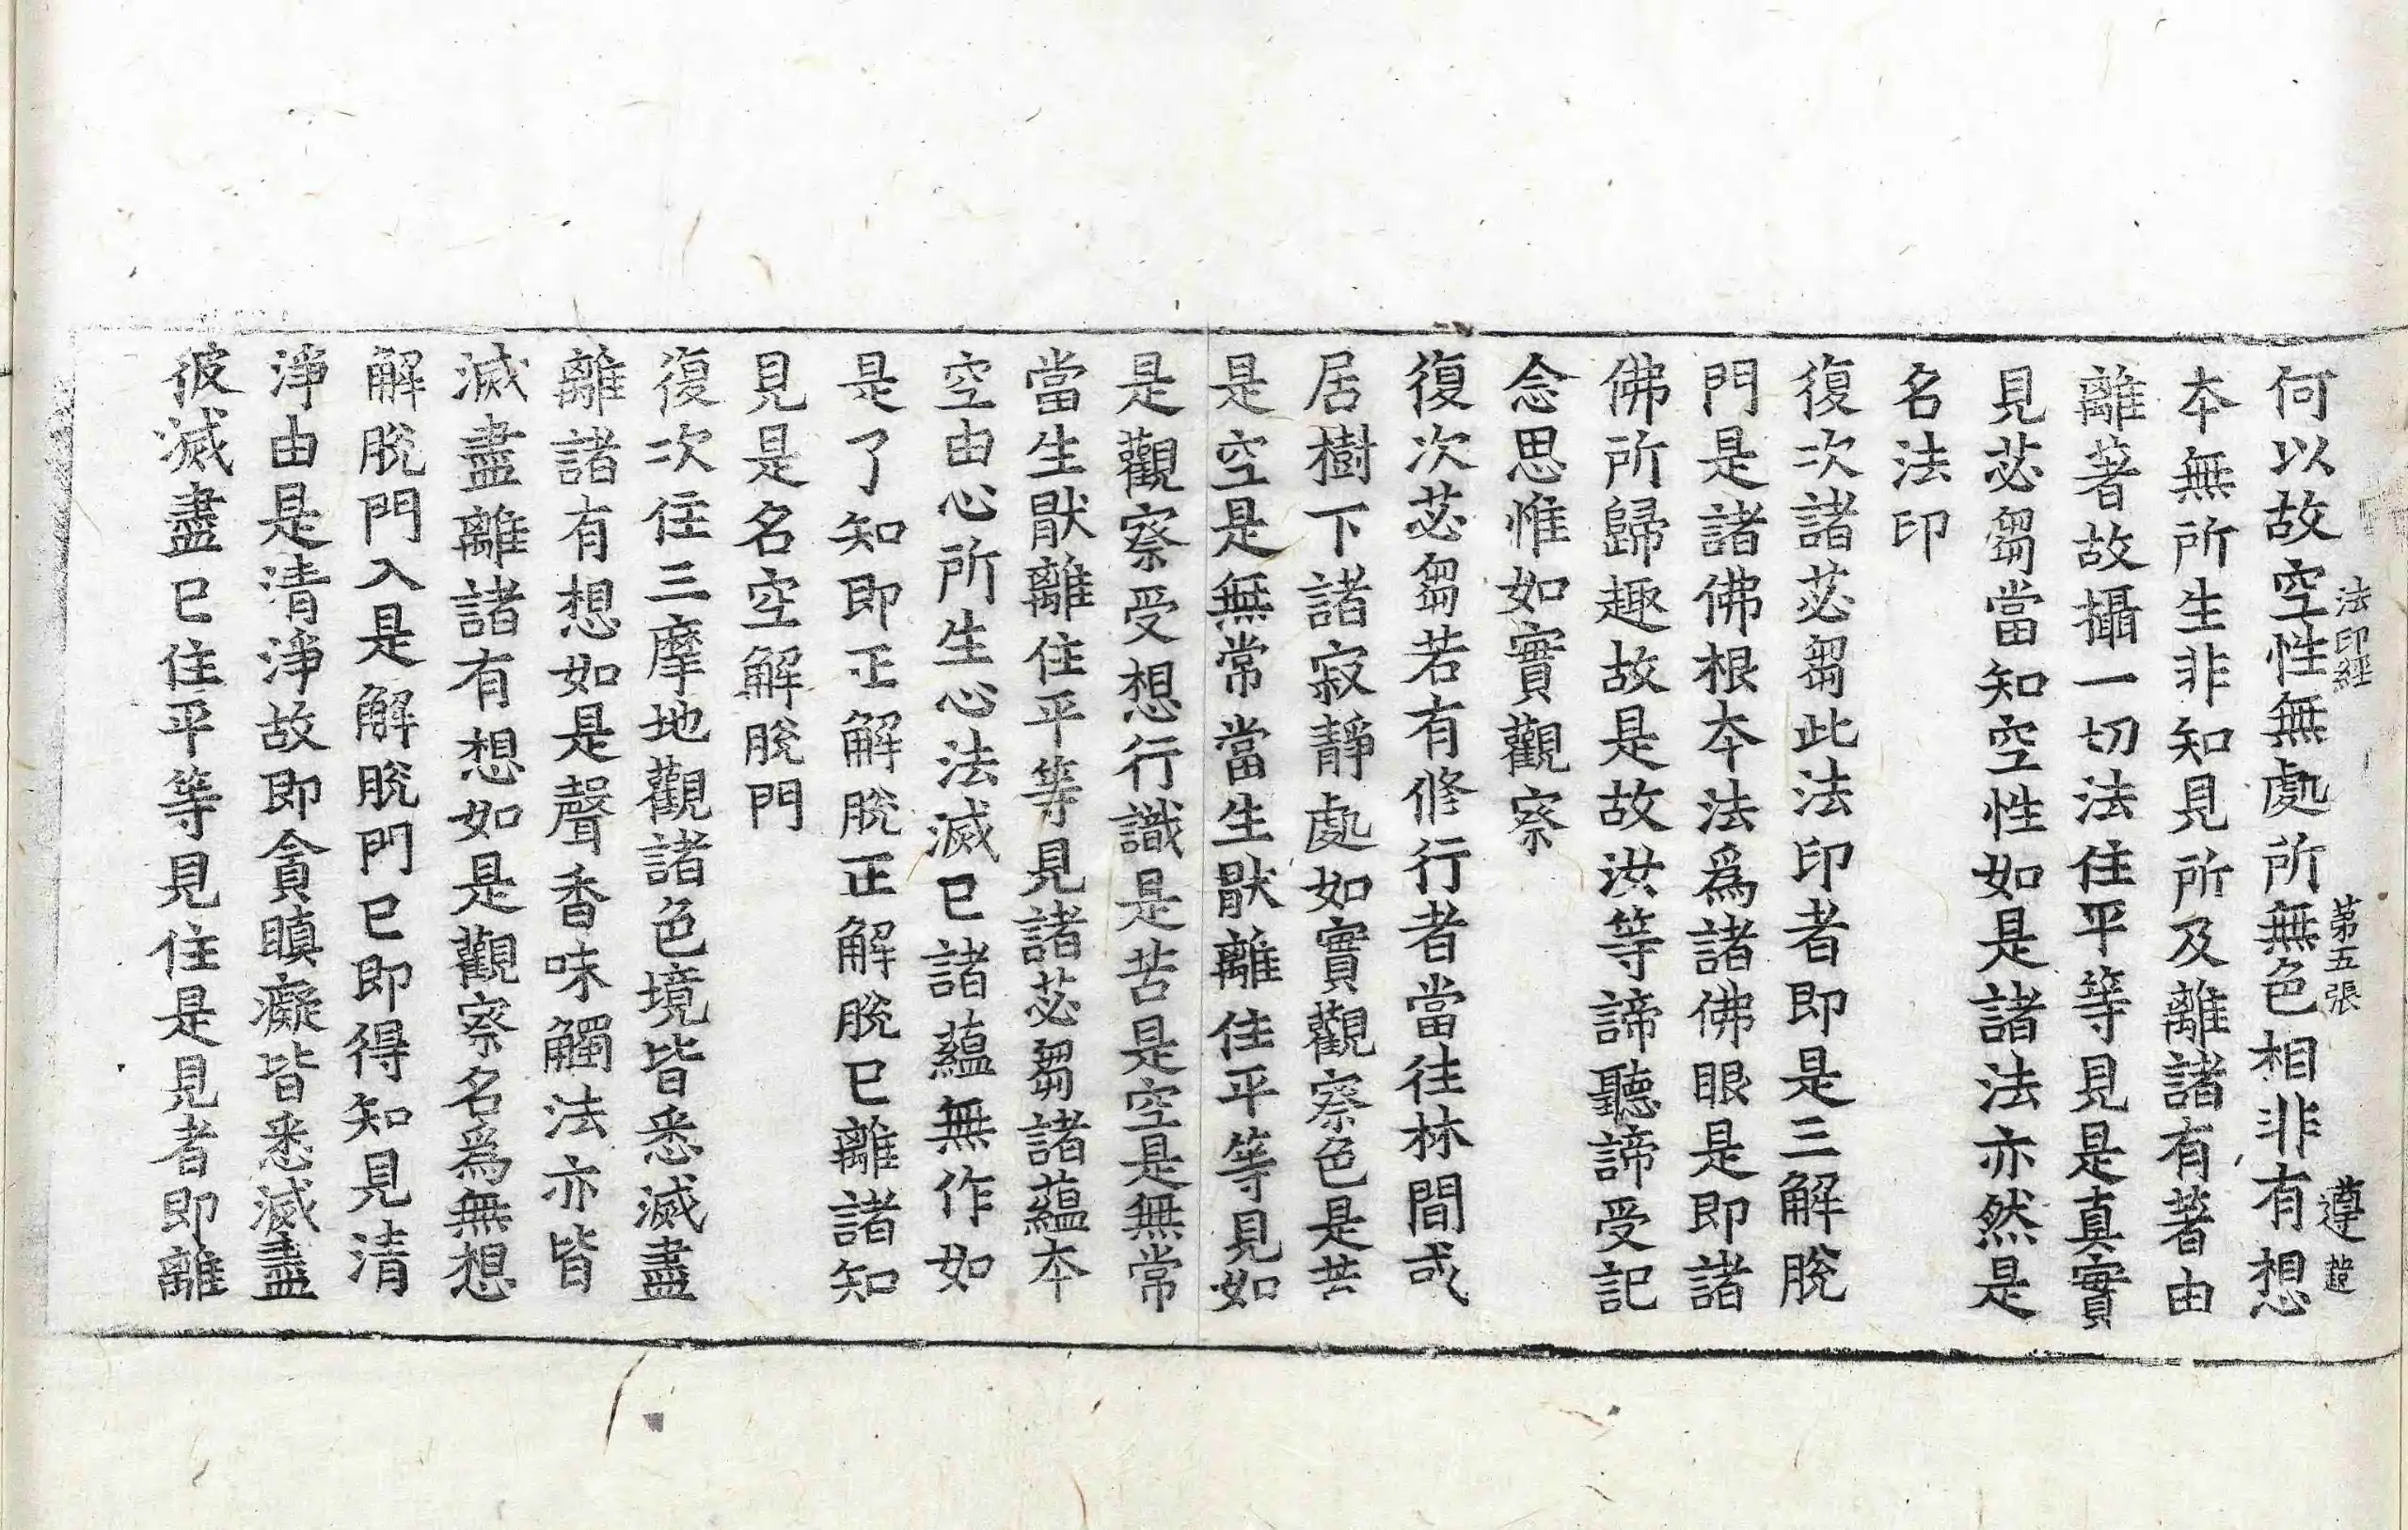 法印經 第五張 遵
何以故空性無處所無色相非有想
本無所生非知見所及離諸有著由
離著故攝一切法住平等見是真實
見苾芻當知空性如是諸法亦然是
名法印
復次諸苾芻此法印者即是三解脫
門是諸佛根本法爲諸佛眼是即諸
佛所歸趣故是故汝等諦聽諦受記
念思惟如實觀察
復次苾芻若有修行者當往林間或
居樹下諸寂靜處如實觀察色是苦
是空是無常當生猒離住平等見如
是觀察受想行識是苦是空是無常
當生猒離住平等見諸苾芻諸蘊本
空由心所生心法滅已諸蘊無作如
是了知即正解脫正解脫已離諸知
見是名空解脫門
復次住三摩地觀諸色境皆悉滅盡
離諸有想如是聲香味觸法亦皆
滅盡離諸有想如是觀察名爲無想
解脫門入是解脫門已即得知見清
淨由是清淨故即貪瞋癡皆悉滅盡
彼滅盡已住平等見住是見者即離